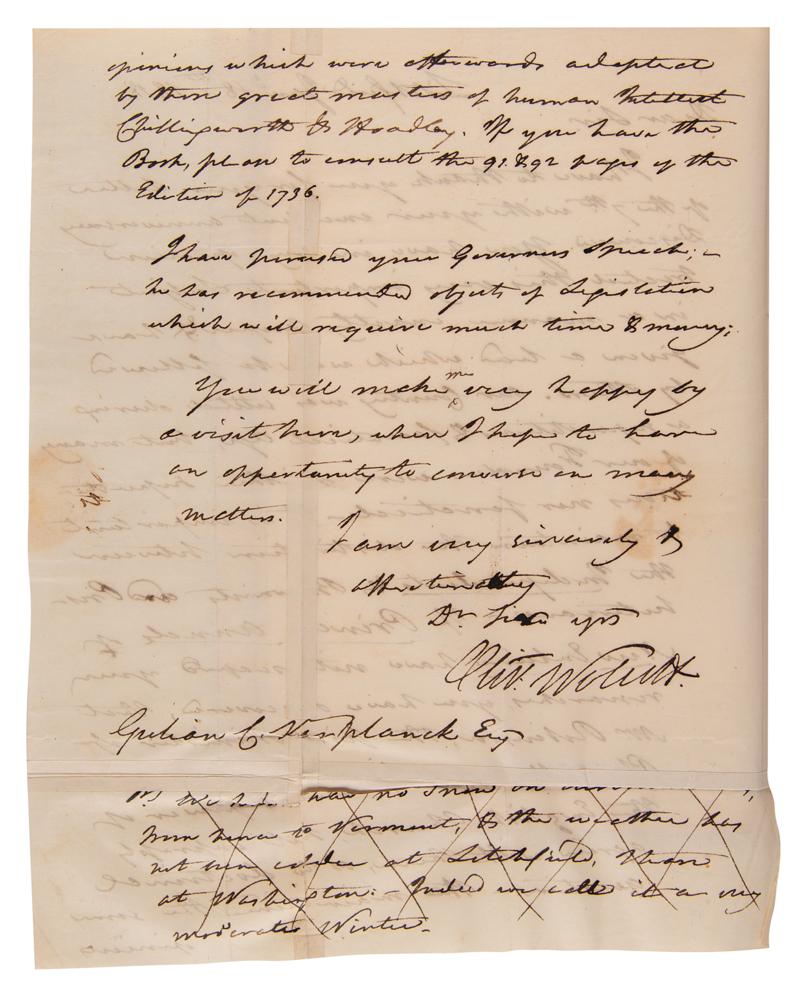 opinions which were afterwards adopted
by those great masters of human Intellect
Chillingsworth & Hoadley. If you have the
Book, please to consult the 91. & 92 pages of the
Edition of 1736.
I have perused your Governors Speech; –
he has recommended objects of Legislation
which will require much time & money;
You will make me very happy by
a visit here, when I hope to have
an opportunity to converse on many
matters.
I am very sincerely &
affectionately
Dr Sir yrs
Oliv. Wolcott.
Gulian C. Verplanck Esq
We have had no Snow on
from hence to Vermont, & the weather has
not been colder at Litchfield, than
at Washington: – Indeed we call it a very
moderate Winter.